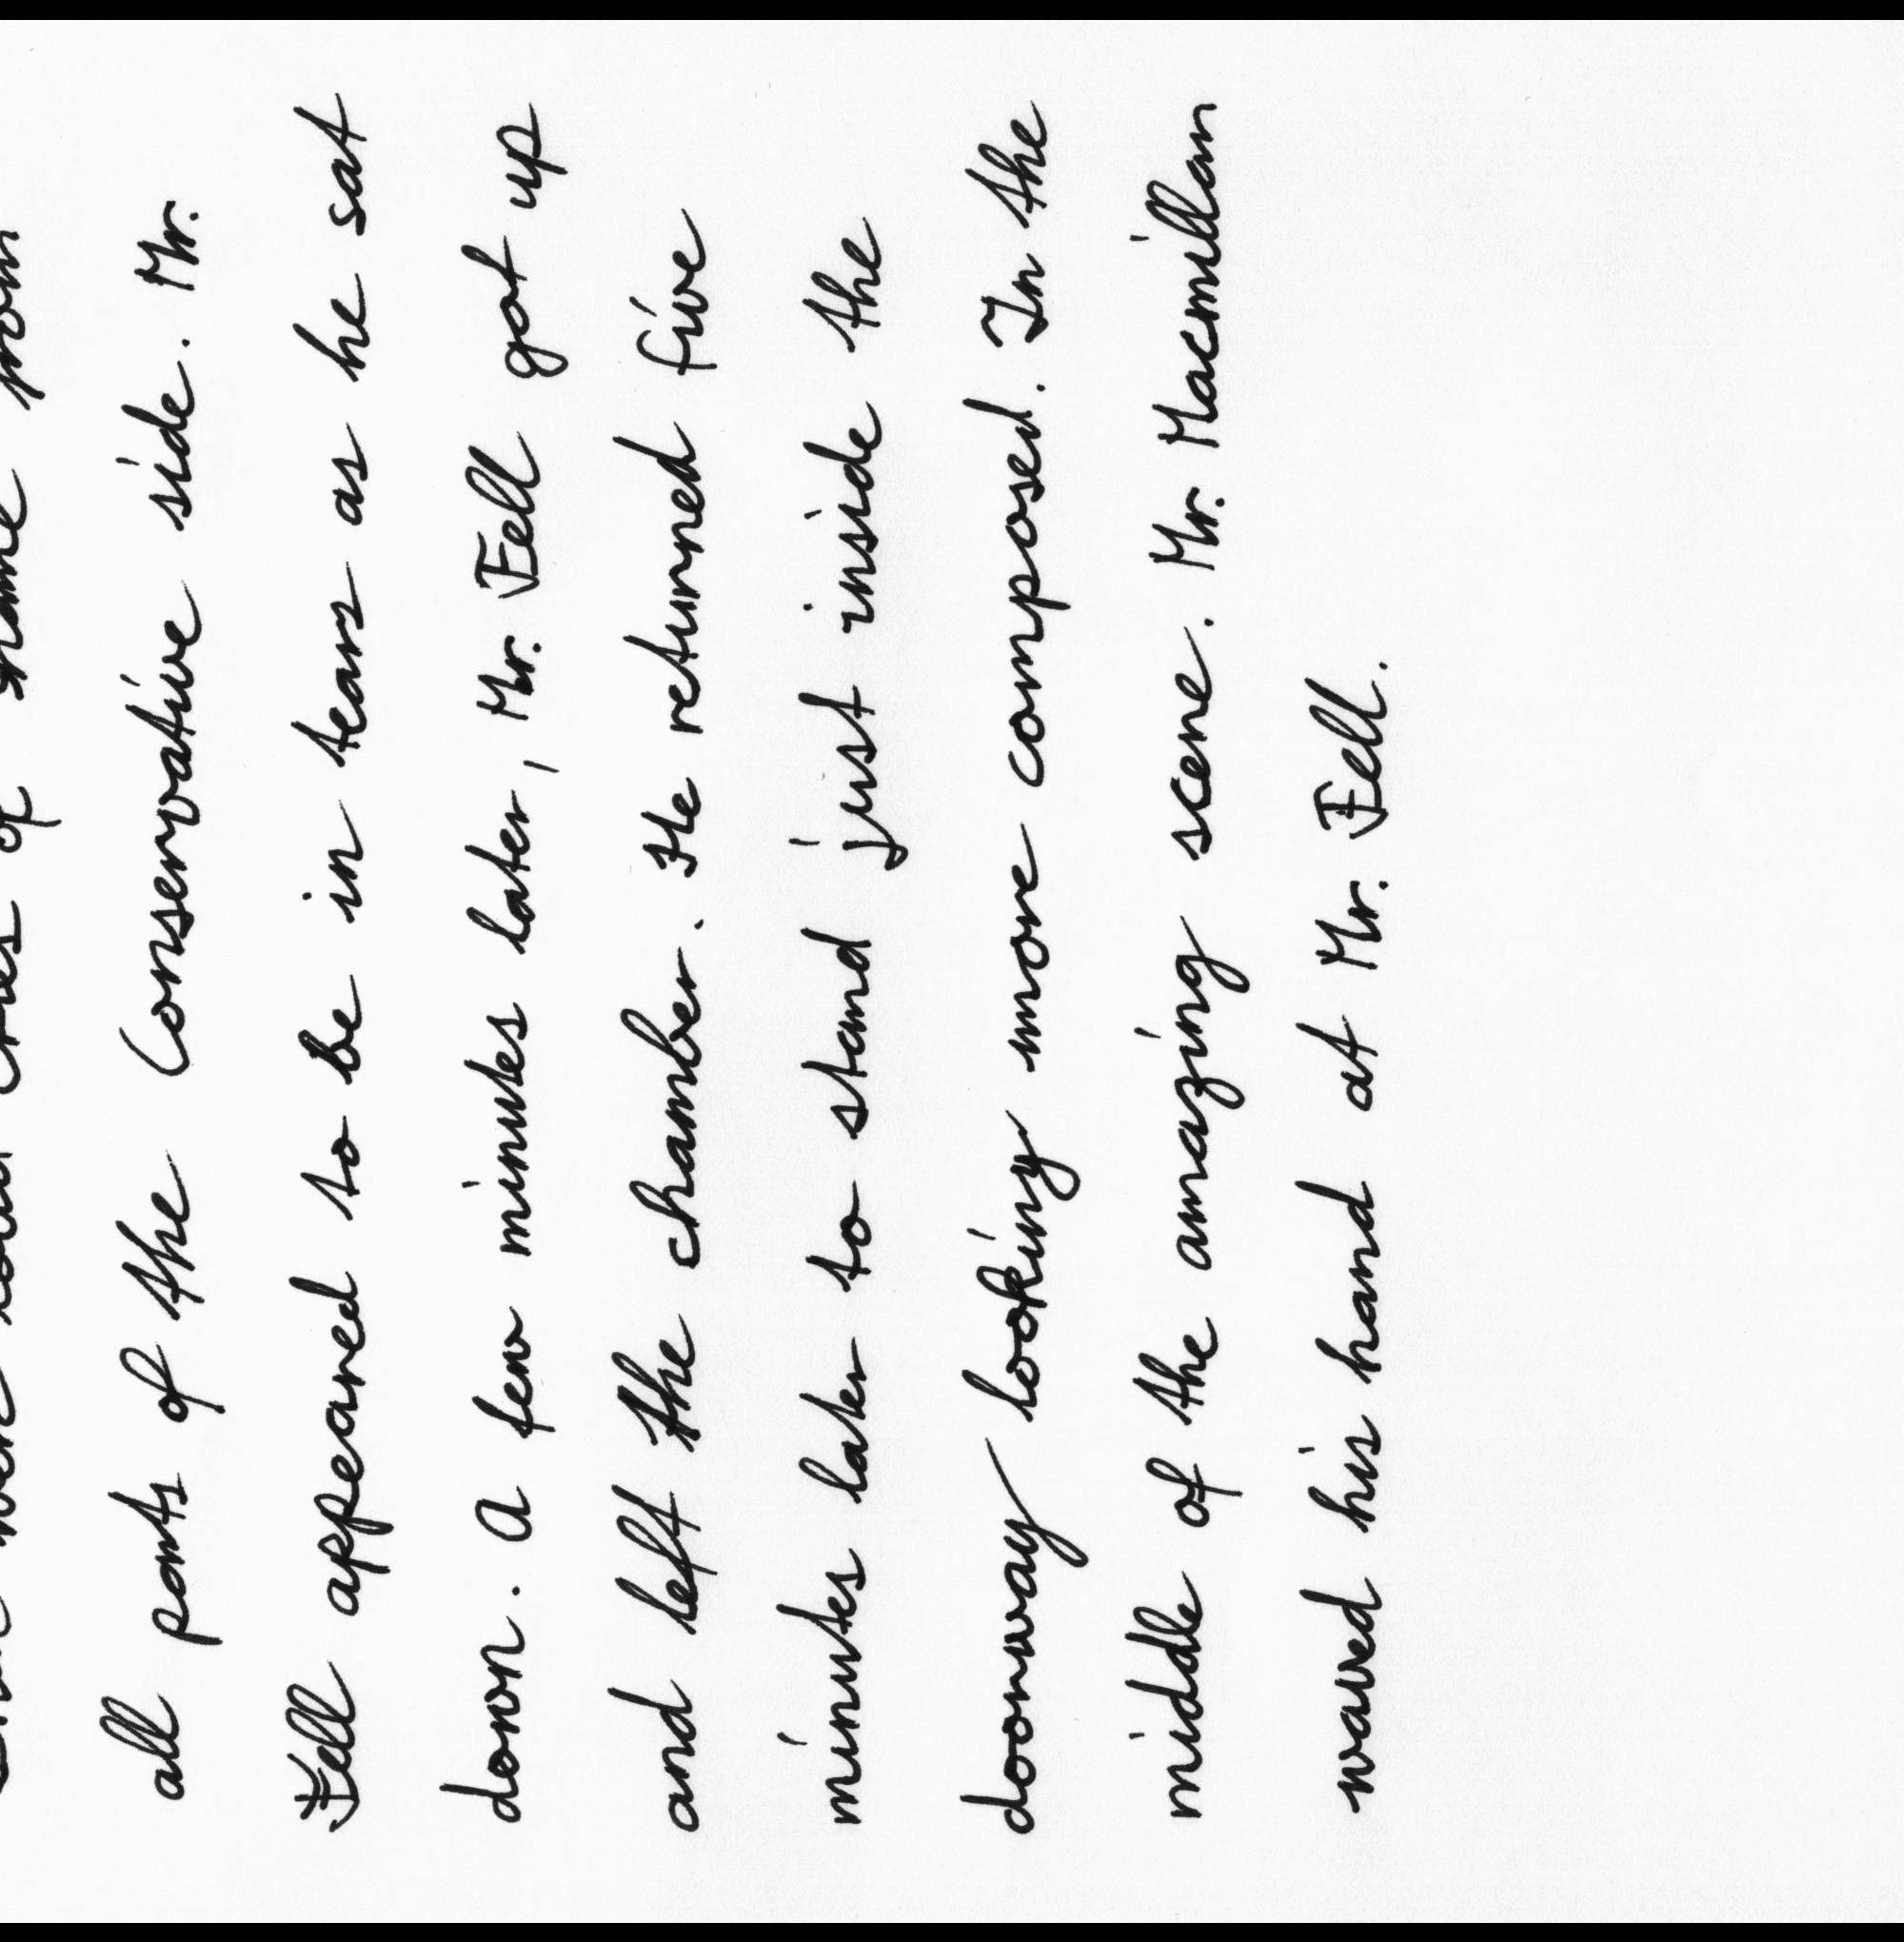 were loud cries of shame from
all parts of the Conservative side. Mr.
Fell appeared to be in tears as he sat
down. A few minutes later, Mr. Fell got up
and left the chamber. He returned five
minutes later to stand just inside the
doorway looking more composed. In the
middle of the amazing scene. Mr. Macmillan
waved his hand at Mr. Fell.